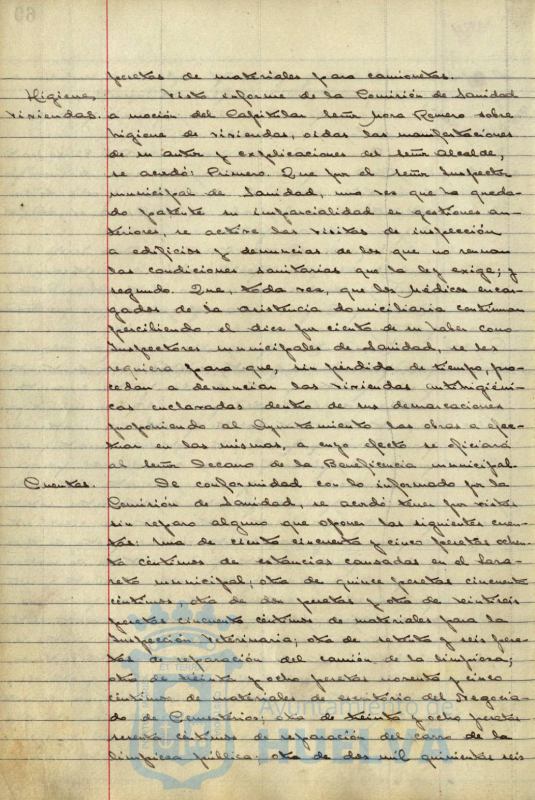 pesetas de materiales para camionetas.
Higiene Visto informe de la Comisión de Sanidad
viviendas. a moción del Capitular Señor Mora Romero sobre
higiene de viviendas, oidas las manifestaciones
de su autor y explicaciones del Señor Alcalde,
se acordó: Primero. Que por el Señor Inspector
municipal de Sanidad, una vez que ha queda-
do patente su imparcialidad en gestiones an-
teriores, se active las visitas de inspección
a edificios y denuncias de los que no reunan
las condiciones sanitarias que la ley exige; y
segundo. Que, toda vez, que los Médicos encar-
gados de la asistencia domiciliaria continuan
percibiendo el diez por ciento de su haber como
Inspectores municipales de Sanidad, se les
requiera para que, sin pérdida de tiempo, pro-
cedan a denunciar las viviendas antihigiéni-
cas enclavadas dentro de sus demarcaciones
proponiendo al Ayuntamiento las obras a efec-
tuar en las mismas, a cuyo efecto se oficiará
al Señor Decano de la Beneficencia municipal.
Cuentas. De conformidad con lo informado por la
Comisión de Sanidad, se acordó tener por vistas
sin reparo alguno que oponer las siguientes cuen-
tas: Una de ciento cincuenta y cinco pesetas ochen-
ta céntimos de estancias causadas en el Laza-
reto municipal; otra de quince pesetas cincuenta
céntimos, otra de dos pesetas y otra de veintiseis
pesetas cincuenta céntimos de materiales para la
Inspección Veterinaria; otra de setenta y seis pese-
tas de reparación del camión de la limpieza;
otra de treinta y ocho pesetas noventa y cinco
céntimos de materiales de escritorio del Negocia-
do de Cementerios; otra de treinta y ocho pesetas
sesenta céntimos de reparación del carro de la
limpieza pública; otra de dos mil quinientas seis
Ayuntamiento de
HUELVA